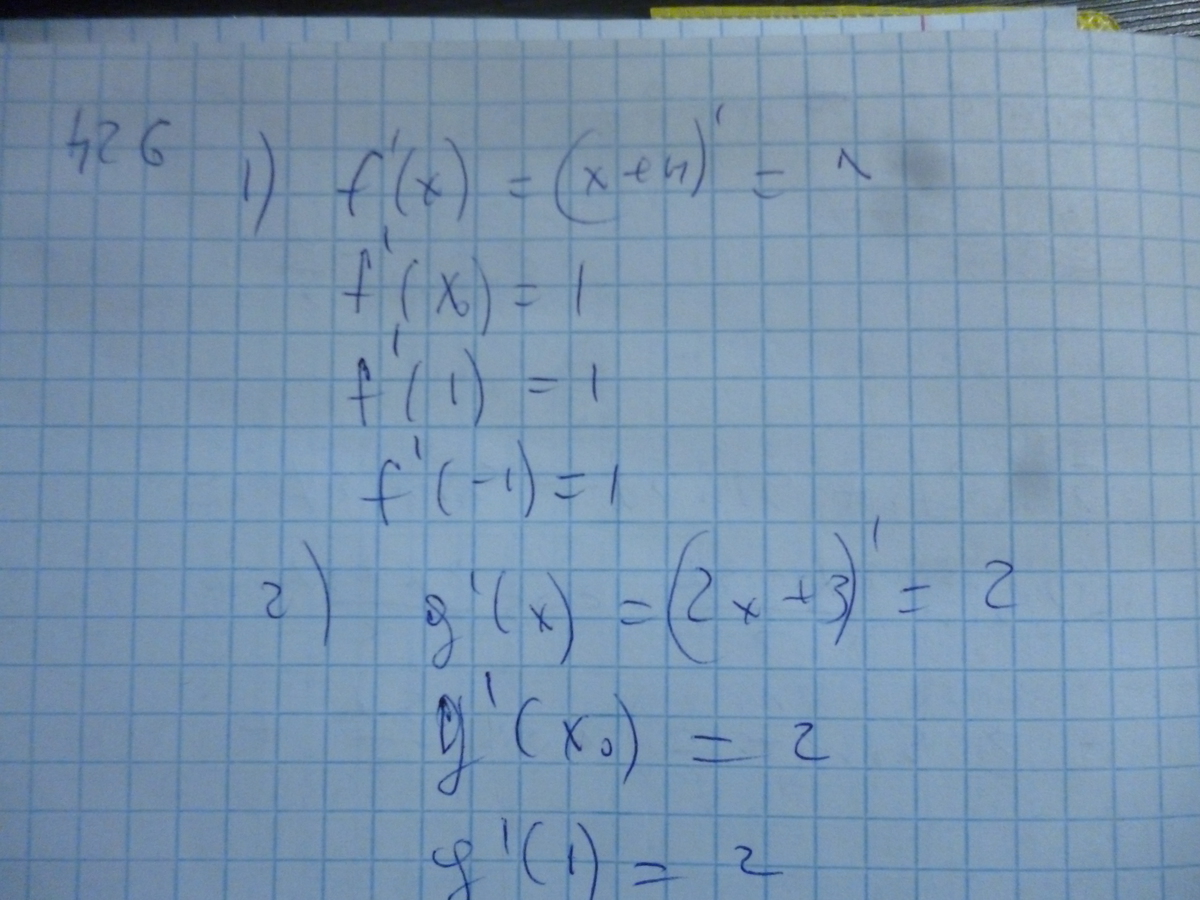 426 1) f'(x) = (x+4)' = 1
f'(x₀) = 1
f'(1) = 1
f'(-1) = 1
2) g'(x) = (2x+3)' = 2
g'(x₀) = 2
g'(1) = 2